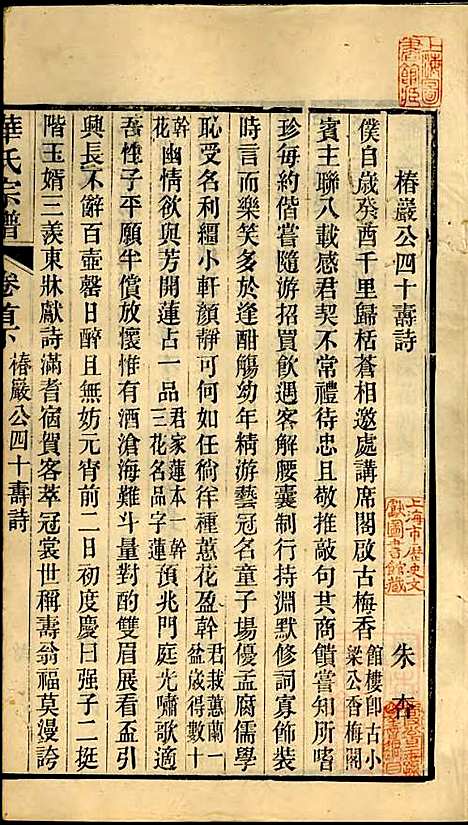 椿巖公四十壽詩
朱杏
僕自歲癸酉千里歸栝蒼相邀處講席閣啟古梅香館樓卽古小梁公香梅閣
賓主聯八載感君契不常禮待忠且敬推敲句其商饋嘗知所嗜
珍每約偕嘗隨游招買飲遇客解腰囊制行持淵默修詞寡飾裝
時言而樂笑多於逢酣觴幼年精游藝冠名童子場優孟腐儒學
恥受名利繮小軒顏靜可何如任徜徉種蕙花盈幹君栽蕙蘭一盆歲得數十幹
花幽情欲與芳開蓮占一品君家蓮本一幹三花名品字蓮預兆門庭光嘯歌適
吾性子平願半償放懷惟有酒滄海難斗量對酌雙眉展看盃引
興長不辭百壺罄日醉且無妨元宵前二日初度慶曰强子二挺
階玉婿三羨東牀獻詩滿耆宿賀客萃冠裳世稱壽翁福莫漫誇
華氏宗譜
卷首下
椿巖公四十壽詩
上海圖書館藏
上海市歷史文獻圖書館藏